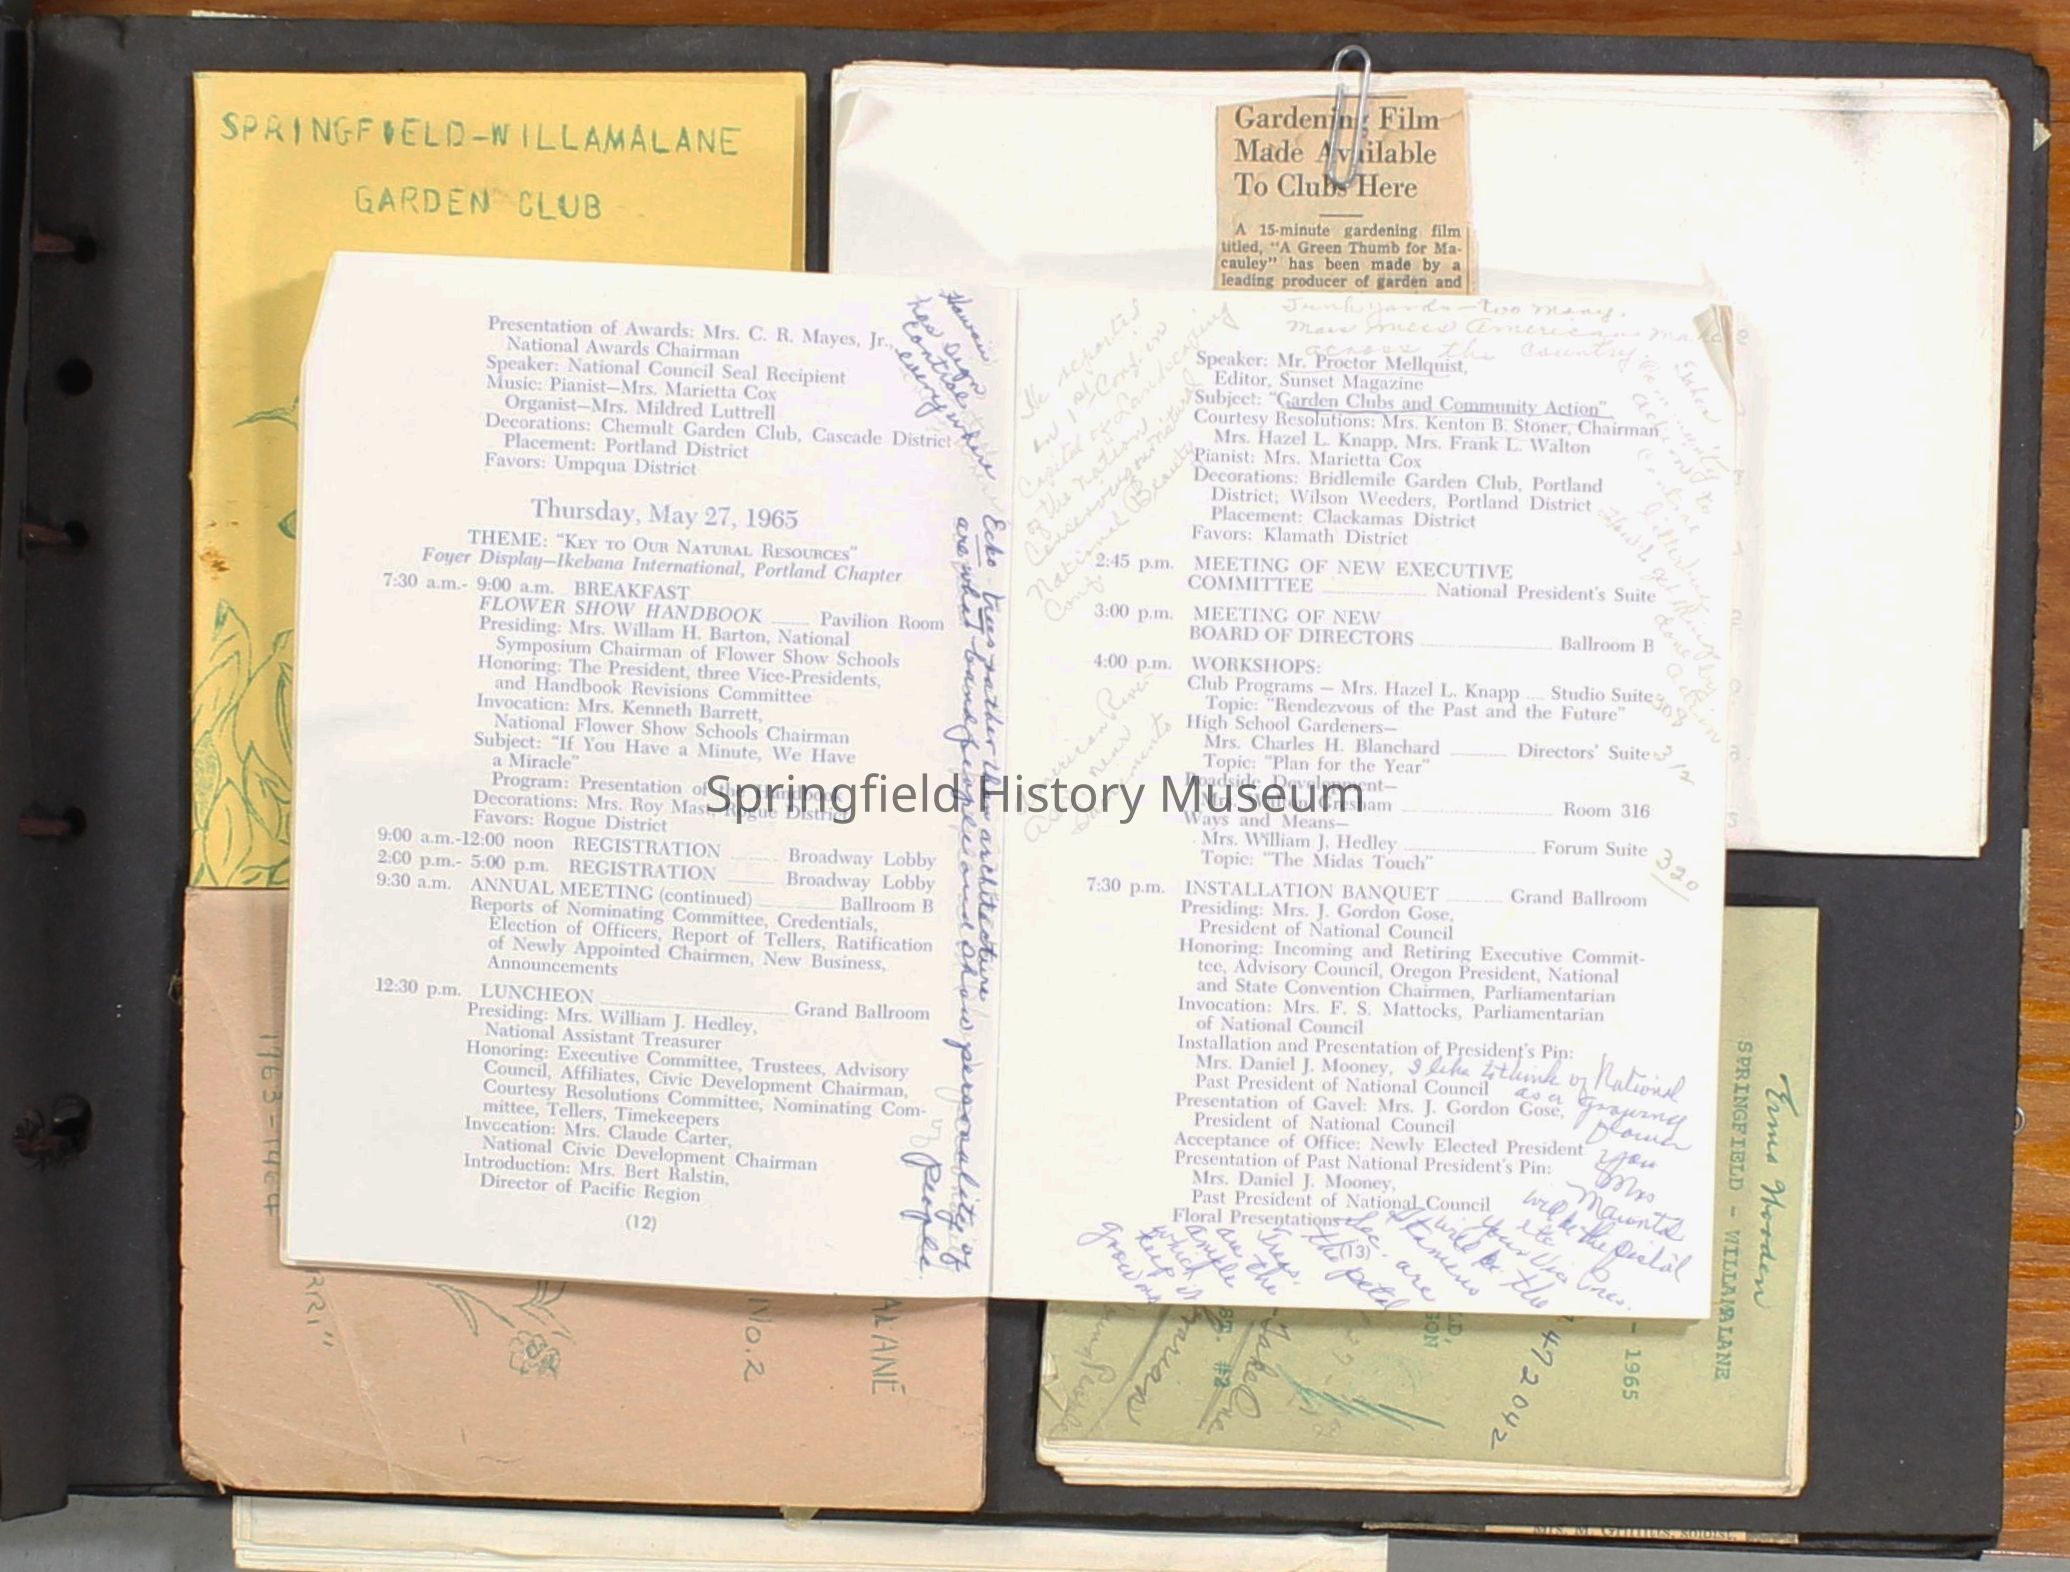 SPRINGFIELD-WILLAMALANE
GARDEN CLUB
Gardening Film
Made Available
To Clubs Here
A 15-minute gardening film
titled, "A Green Thumb for Ma-
cauley" has been made by a
leading producer of garden and
Presentation of Awards: Mrs. C. R. Mayes, Jr.,
National Awards Chairman
Speaker: National Council Seal Recipient
Music: Pianist—Mrs. Marietta Cox
Organist—Mrs. Mildred Luttrell
Decorations: Chemult Garden Club, Cascade District
Placement: Portland District
Favors: Umpqua District
Thursday, May 27, 1965
THEME: "KEY TO OUR NATURAL RESOURCES"
Foyer Display—Ikebana International, Portland Chapter
7:30 a.m.- 9:00 a.m. BREAKFAST
FLOWER SHOW HANDBOOK Pavilion Room
Presiding: Mrs. Willam H. Barton, National
Symposium Chairman of Flower Show Schools
Honoring: The President, three Vice-Presidents,
and Handbook Revisions Committee
Invocation: Mrs. Kenneth Barrett,
National Flower Show Schools Chairman
Subject: "If You Have a Minute, We Have
a Miracle"
Program: Presentation of the Handbook
Decorations: Mrs. Roy Mast, Rogue District
Favors: Rogue District
9:00 a.m.-12:00 noon REGISTRATION Broadway Lobby
2:00 p.m.- 5:00 p.m. REGISTRATION Broadway Lobby
9:30 a.m. ANNUAL MEETING (continued) Ballroom B
Reports of Nominating Committee, Credentials,
Election of Officers, Report of Tellers, Ratification
of Newly Appointed Chairmen, New Business,
Announcements
12:30 p.m. LUNCHEON Grand Ballroom
Presiding: Mrs. William J. Hedley,
National Assistant Treasurer
Honoring: Executive Committee, Trustees, Advisory
Council, Affiliates, Civic Development Chairman,
Courtesy Resolutions Committee, Nominating Com-
mittee, Tellers, Timekeepers
Invocation: Mrs. Claude Carter,
National Civic Development Chairman
Introduction: Mrs. Bert Ralstin,
Director of Pacific Region
(12)
Hawaii
has sign
control
everywhere
Echo trees rather than architecture
are what brand people and show personality of
People.
Junk yards - too many.
across the country.
Speaker: Mr. Proctor Mellquist,
Editor, Sunset Magazine
Subject: "Garden Clubs and Community Action"
Courtesy Resolutions: Mrs. Kenton B. Stoner, Chairman
Mrs. Hazel L. Knapp, Mrs. Frank L. Walton
Pianist: Mrs. Marietta Cox
Decorations: Bridlemile Garden Club, Portland
District; Wilson Weeders, Portland District
Placement: Clackamas District
Favors: Klamath District
2:45 p.m. MEETING OF NEW EXECUTIVE
COMMITTEE National President's Suite
3:00 p.m. MEETING OF NEW
BOARD OF DIRECTORS Ballroom B
4:00 p.m. WORKSHOPS:
Club Programs — Mrs. Hazel L. Knapp Studio Suite 308
Topic: "Rendezvous of the Past and the Future"
High School Gardeners—
Mrs. Charles H. Blanchard Directors' Suite 312
Topic: "Plan for the Year"
Roadside Development—
Mrs. Gresham Room 316
Ways and Means—
Mrs. William J. Hedley Forum Suite 320
Topic: "The Midas Touch"
7:30 p.m. INSTALLATION BANQUET Grand Ballroom
Presiding: Mrs. J. Gordon Gose,
President of National Council
Honoring: Incoming and Retiring Executive Commit-
tee, Advisory Council, Oregon President, National
and State Convention Chairmen, Parliamentarian
Invocation: Mrs. F. S. Mattocks, Parliamentarian
of National Council
Installation and Presentation of President's Pin:
Mrs. Daniel J. Mooney,
Past President of National Council
Presentation of Gavel: Mrs. J. Gordon Gose,
President of National Council
Acceptance of Office: Newly Elected President
Presentation of Past National President's Pin:
Mrs. Daniel J. Mooney,
Past President of National Council
Floral Presentations
(13)
He reported
on 1st Conf. on
of the Nation
National Beauty
Conf.
American River
near
Sacramento
I like to think of National
as a growing
flower
you
Mrs
will be the pistil
your Vice Pres.
will be the
stamens
Sec. are
the petal
Treas.
are the
ample
which
keep us
growing
Springfield History Museum
1963-1964
NO.2
ALANE
SPRINGFIELD - WILLAMALANE
Erma Wooden
- 1965
472042
#2
Mrs. M. Griffitts, soloist.